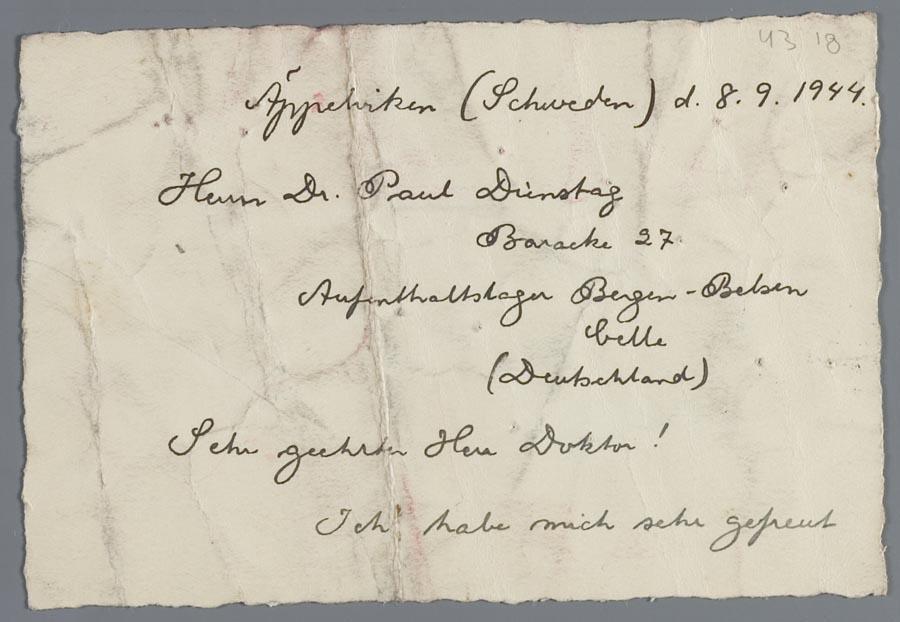 43 18
Äppelviken (Schweden) d. 8. 9. 1944.
Herrn Dr. Paul Dienstag
Baracke 27.
Aufenthaltslager Bergen-Belsen
Celle
(Deutschland)
Sehr geehrter Herr Doktor!
Ich habe mich sehr gefreut